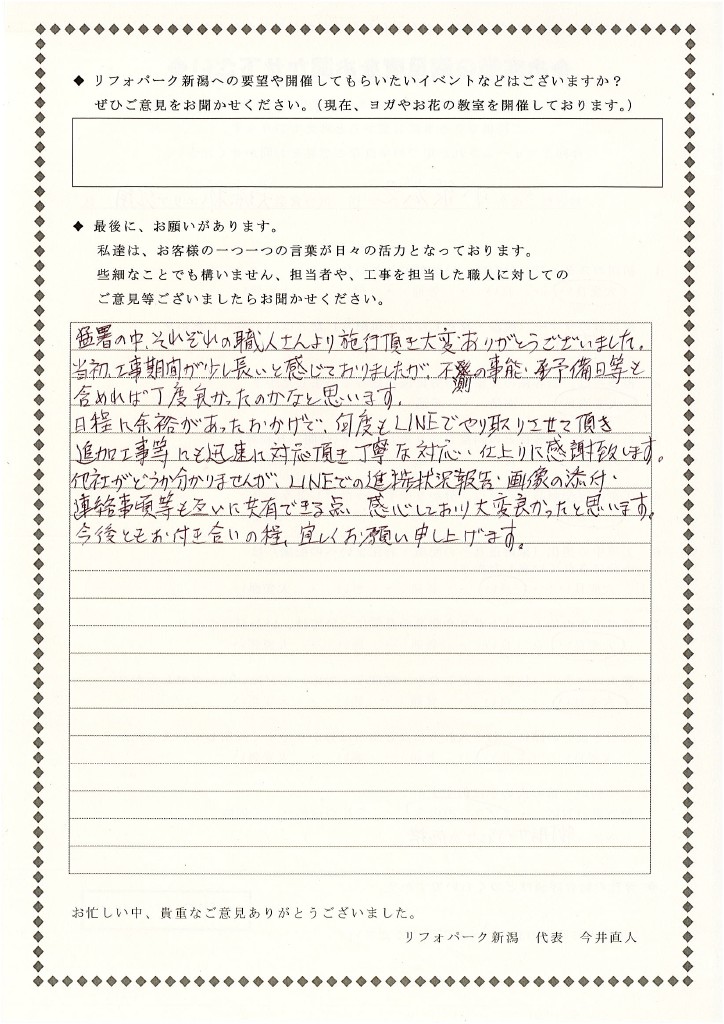 ◆ リフォパーク新潟への要望や開催してもらいたいイベントなどはございますか？
ぜひご意見をお聞かせください。（現在、ヨガやお花の教室を開催しております。）
◆ 最後に、お願いがあります。
私達は、お客様の一つ一つの言葉が日々の活力となっております。
些細なことでも構いません、担当者や、工事を担当した職人に対しての
ご意見等ございましたらお聞かせください。
猛署の中、それぞれの職人さんより施行頂き大変ありがとうございました。
当初、工事期間が少し長いと感じておりましたが、不測の事態・予備日等も
含めれば丁度良かったのかなと思います。
日程に余裕があったおかげで、何度もLINEでやり取りさせて頂き
追加工事等にも迅速に対応頂き丁寧な対応・仕上りに感謝致します。
他社がどうか分かりませんが、LINEでの進捗状況報告・画像の添付・
連絡事項等も互いに共有できる点、感心しており大変良かったと思います。
今後ともお付き合いの程、宜しくお願い申し上げます。
お忙しい中、貴重なご意見ありがとうございました。
リフォパーク新潟　代表　今井直人